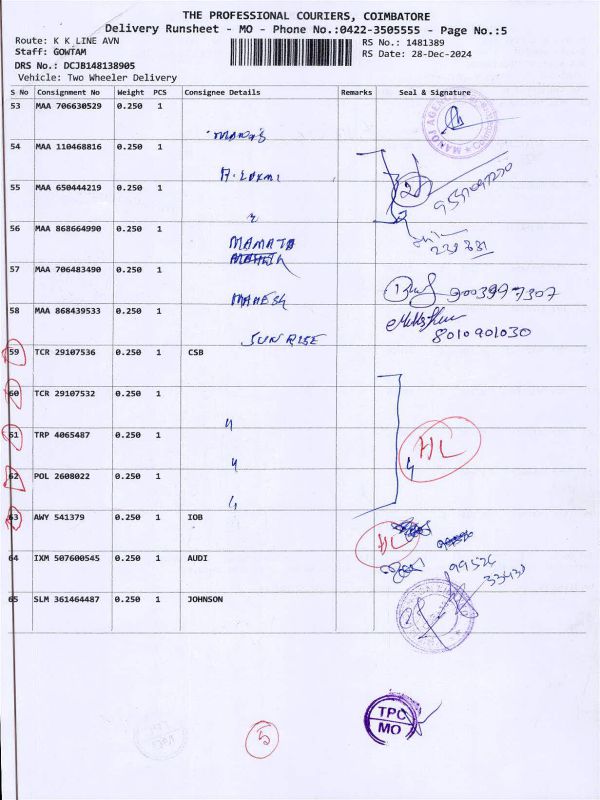 THE PROFESSIONAL COURIERS, COIMBATORE
Delivery Runsheet - MO - Phone No.:0422-3505555 - Page No.:5
Route: K K LINE AVN
RS No.: 1481389
Staff: GOWTAM
RS Date: 28-Dec-2024
DRS No.: DCJB148138905
Vehicle: Two Wheeler Delivery
S No Consignment No Weight PCS Consignee Details Remarks Seal & Signature
53 MAA 706630529 0.250 1
54 MAA 110468816 0.250 1
A. Laxmi
55 MAA 650444219 0.250 1
2
56 MAA 868664990 0.250 1
MAMATA
57 MAA 706483490 0.250 1
MAHESH
9003997307
58 MAA 868439533 0.250 1
SUN RISE
8010901030
59 TCR 29107536 0.250 1 CSB
60 TCR 29107532 0.250 1
"
61 TRP 4065487 0.250 1
"
HL
62 POL 2608022 0.250 1
"
63 AWY 541379 0.250 1 IOB
HL
64 IXM 507600545 0.250 1 AUDI
65 SLM 361464487 0.250 1 JOHNSON
TPC
MO
5